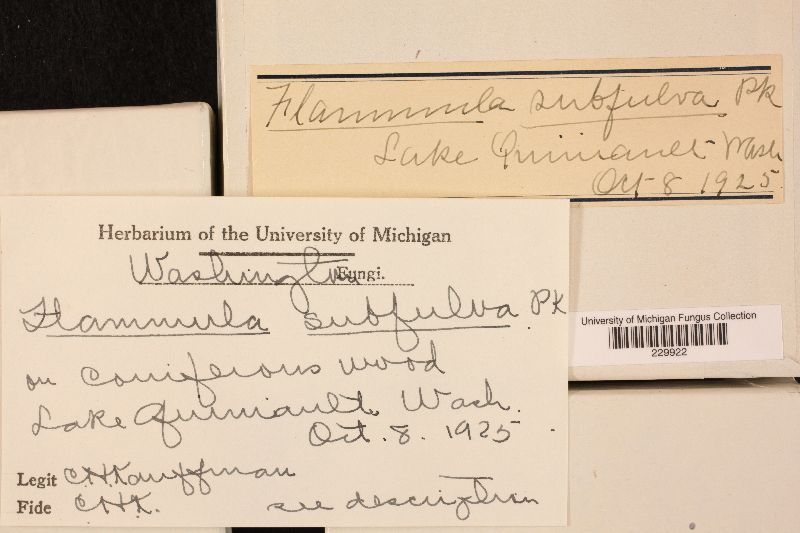 Flammula subfulva Pk
Lake Quinault Wash
Oct 8 1925
Herbarium of the University of Michigan
Washington Fungi.
Flammula subfulva Pk
on coniferous wood
Lake Quiniault, Wash.
Oct. 8. 1925
Legit C.H.Kauffman
Fide C.H.K. see description
University of Michigan Fungus Collection
229922